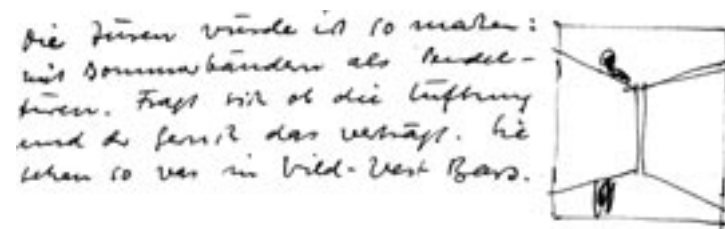 Die Türen würde ich so machen:
mit Bommerbändern als Pendel-
türen. Fragt sich ob die Lüftung
und der Geruch das verträgt. Sie
sehen so was in Wild-West Bars.